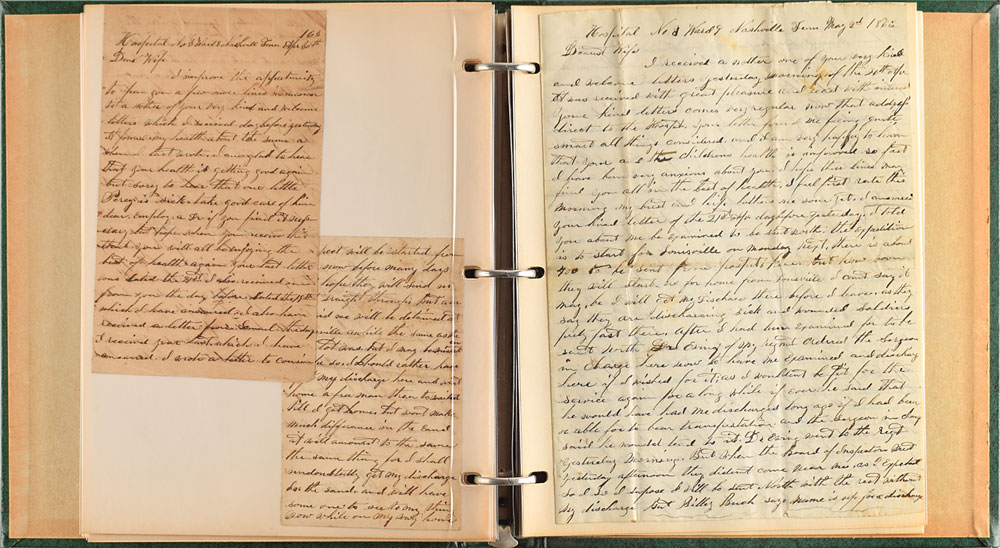 163
Hospital No 3 Ward 9 Nashville Tenn Apr 30th
Dear Wife
I improve the oppertunity
to pen you a few more lines in answer
to a nother of your very kind and welcome
letters which I received day before yesterday
It found my health about the same as
when I last wrote. I am glad to hear
that your health is getting good again
but sorry to hear that our little
Percy is sick take good care of him
dear. Employ a Dr if you find it nesse
essary but hope when you receive this
that you will all be enjoying the
best of health again your last letter
was dated the 21st I also received one
from you the day before dated the 18th
which I have answered I also have
received a letter from
I received year last which I have
answered. I wrote a letter to cousin
pect will be started from
now before many days
hope they will send us
straight through but am
afraid we will be detained at
ville awhile the same as the
lot was but I may be mistaken
I should rather have
my discharge here and went
home a free man then to waited
till I got home but wont make
much difference in the end
it will amount to the same
the same thing for I shall
undoubtedly get my discharge
in the end and will have
some one to see to my things
now while on my way home
Hospital No 3 Ward 9 Nashville Tenn May 2d 1862
Dearest Wife
I received a nother one of your very kind
and welcome letters yesterday morning of the 24th Apr
It was received with great pleasure and read with interest
your kind letters comes very regular now that address
direct to the Hospt. your letter found me feeling quite
smart all things considered and I am very happy to learn
that your and the childrens health is improved so fast
I have been very anxious about you I hope these lines may
find you all in the best of health. I feel first rate this
morning my breast and hip bothers me some yet. I answered
your kind letter of the 21st Apr day before yesterday. I told
you about me be examined to be sent north. the expedition
is to start for Louisville on Monday next, there is about
400 to be sent from hospts here but how soon
they will start us for home from Louisville I cant say it
may be I will get my Discharge there before I leave, as they
say they are discharging sick and wounded soldiers
pretty fast there, After I had been examined for to be
sent North Dr Ewing of my regmt ordered the Surgeon
in Charge here now to have me examined and discharg
here if I wished for it, as I wouldent be fit for the
service again for a long while if ever. he said that
he would have had me discharged long ago if I had been
able for to bear transportation and the surgeon in charg
said he would tend to it. Dr Ewing went to the regt
yesterday morning. But when the board of Inspectors met
yesterday afternoon they dident come near me as I expected
so I I suppose I will be sent North with the rest without
my discharge but Billey Bush says name is up for a discharge